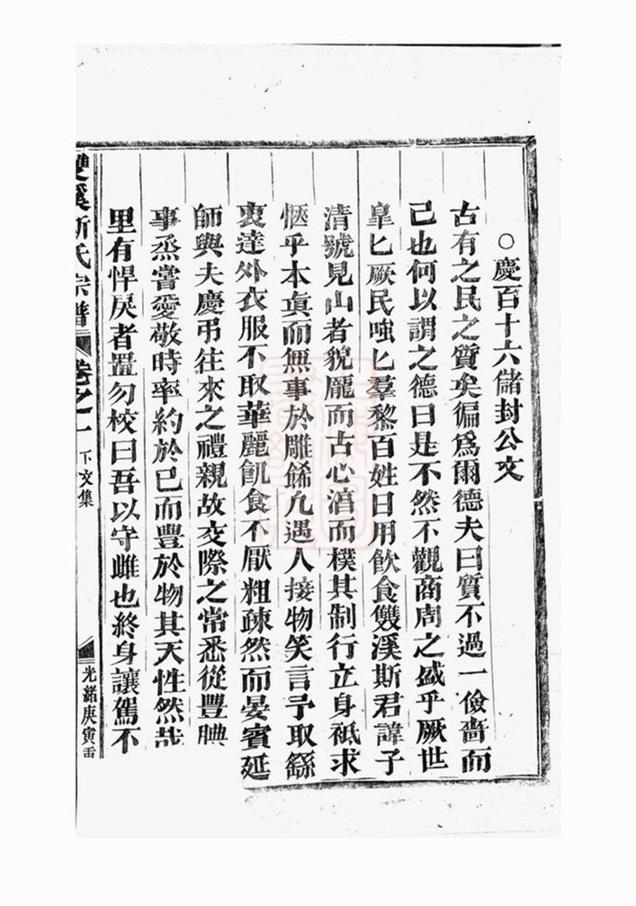 ○慶百十六儲封公文
古有之民之質矣徧為爾德夫曰質不過一儉嗇而
己也何以謂之德曰是不然不觀商周之盛乎厥世
皐匕厥民嗤匕羣黎百姓日用飲食雙溪斯君諱子
清號見山者貌龐而古心湻而樸其制行立身祗求
愜乎本眞而無事於雕餙凢遇人接物笑言予取繇
衷達外衣服不取華麗飢食不厭粗疎然而晏賓延
師與夫慶弔往來之禮親故交際之常悉從豐腆
事烝嘗愛敬時率約於已而豐於物其天性然哉
里有悍戾者置勿校曰吾以守雌也終身讓駕不
雙溪斯氏宗譜 卷之一 下文集 光緒庚寅重